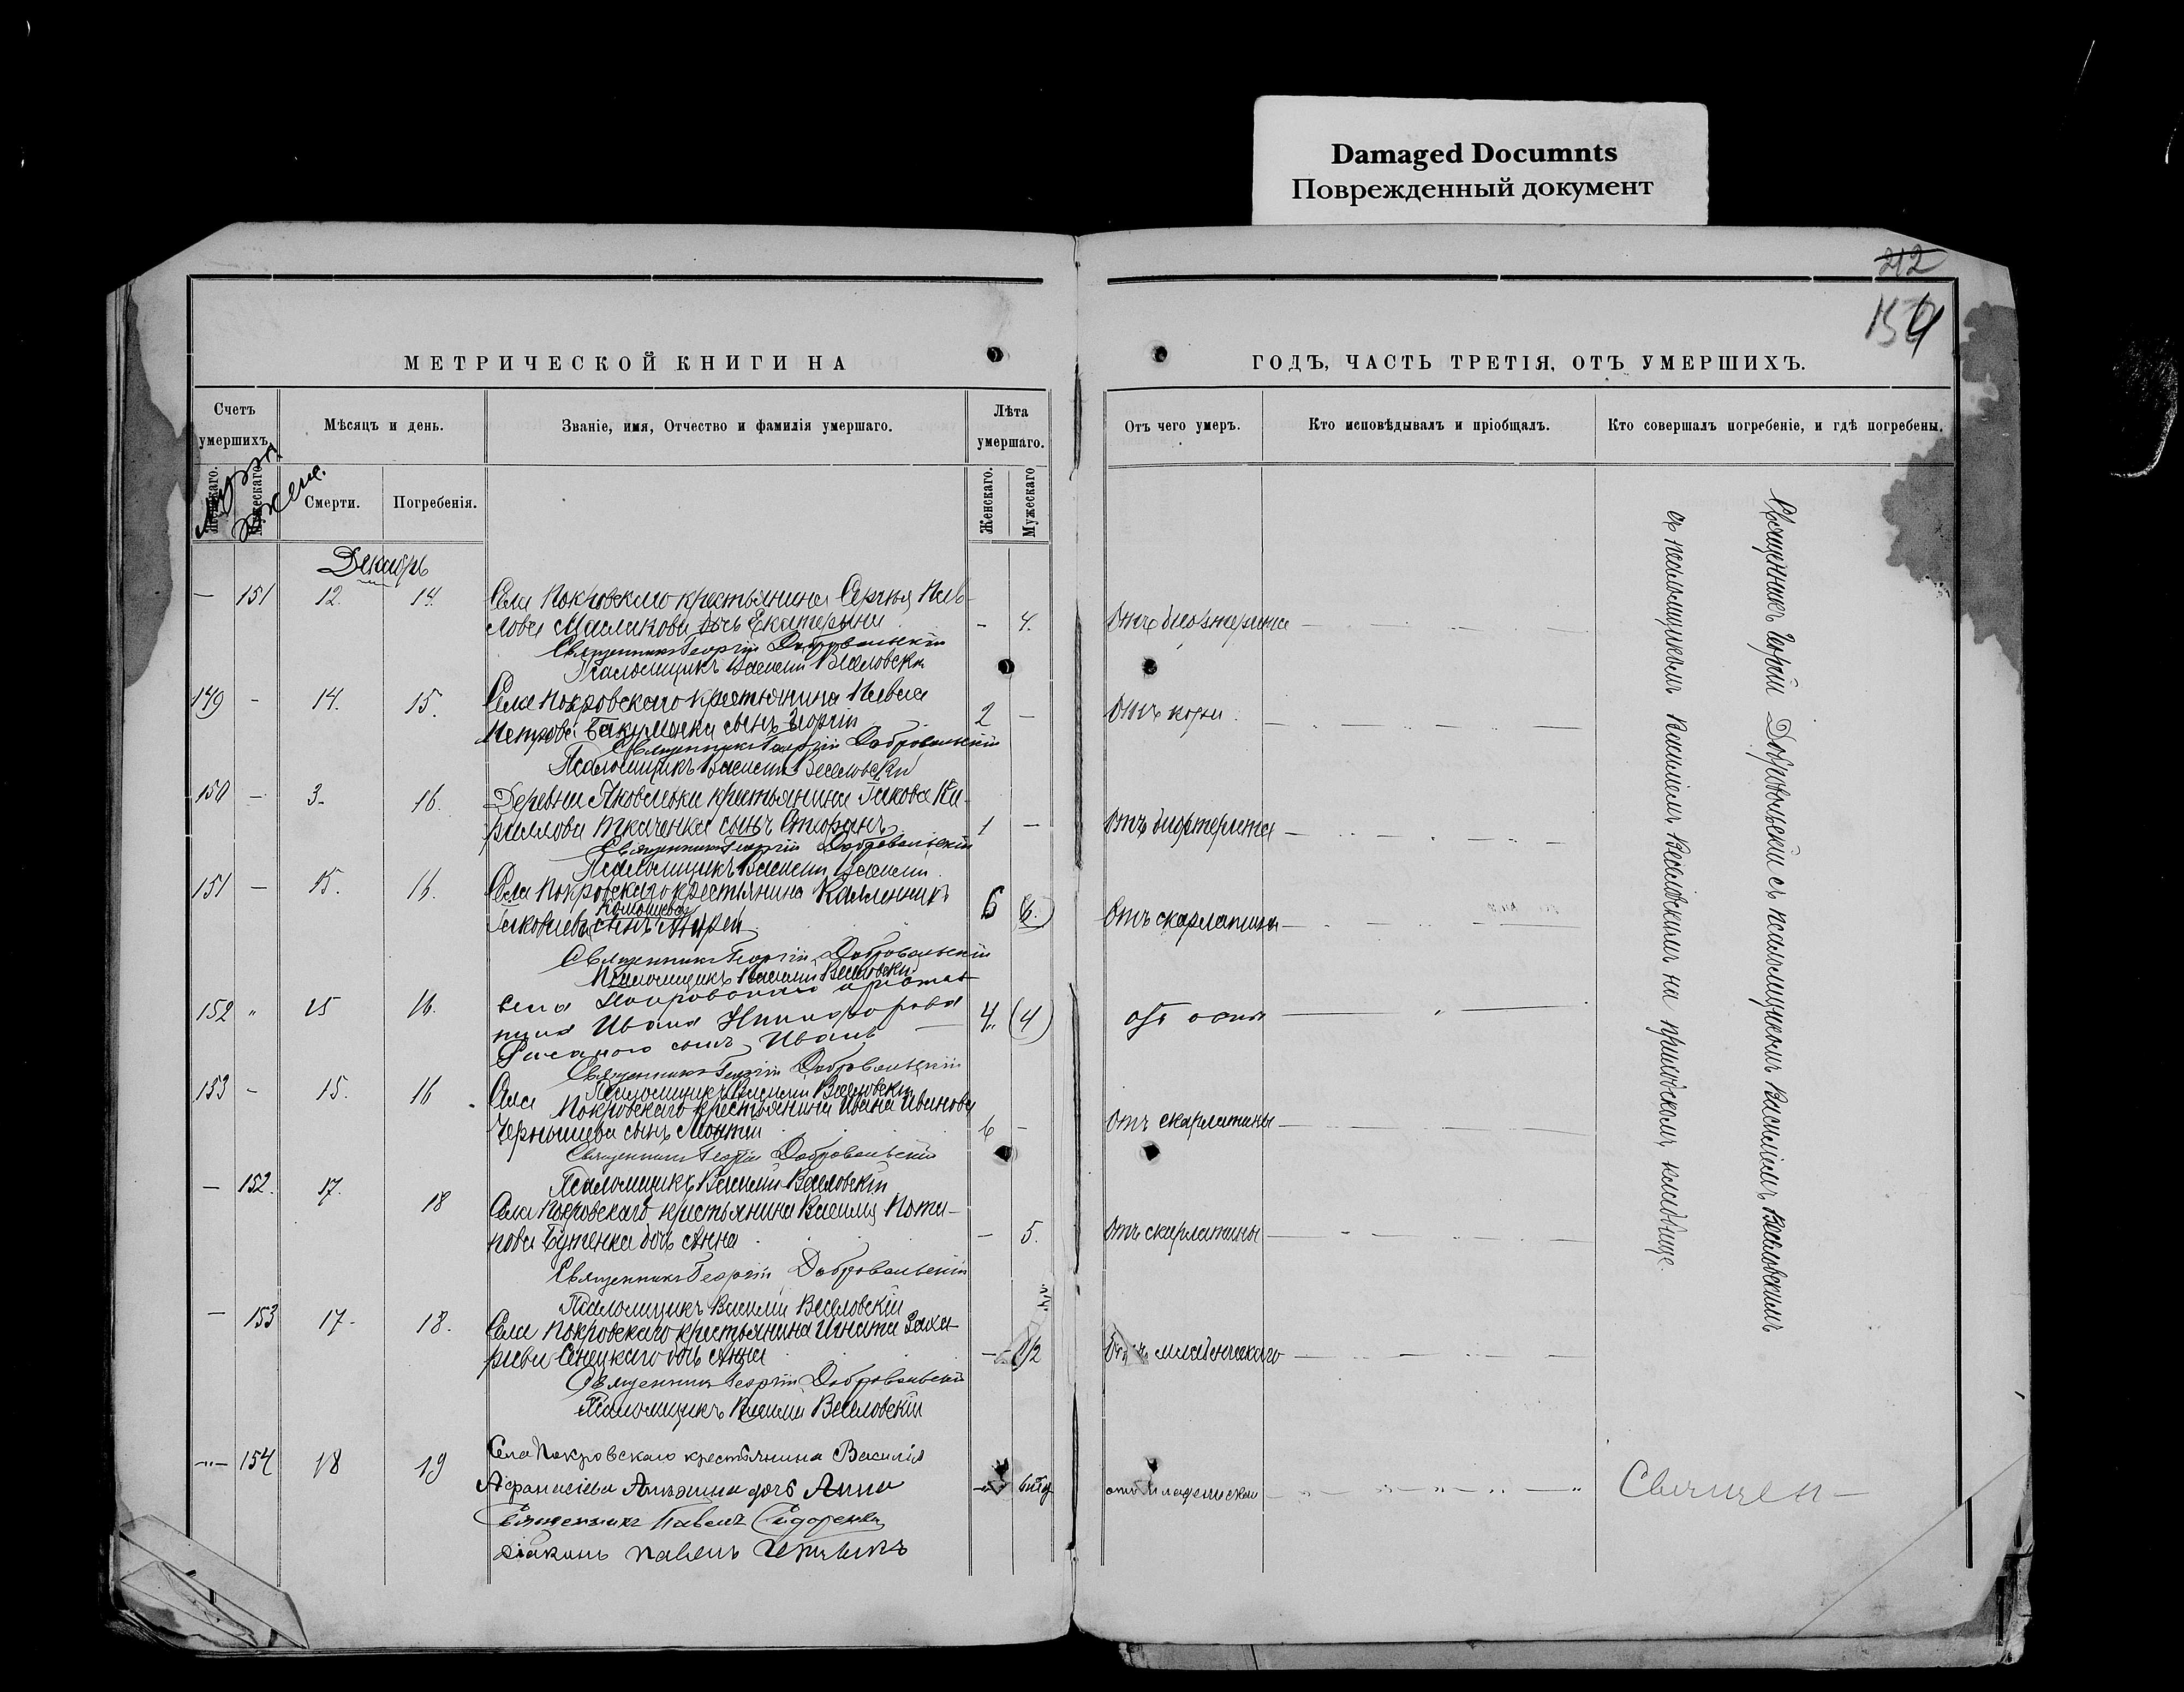 Damaged Documnts
Поврежденный документ
212
154
МЕТРИЧЕСКОЙ КНИГИ НА
ГОДЪ, ЧАСТЬ ТРЕТІЯ, ОТЪ УМЕРШИХЪ.
Счетъ умершихъ.
Мѣсяцъ и день.
Званіе, имя, Отчество и фамилія умершаго.
Лѣта умершаго.
Отъ чего умеръ.
Кто исповѣдывалъ и пріобщалъ.
Кто совершалъ погребеніе, и гдѣ погребены.
Женскаго.
Мужескаго
Смерти.
Погребенія.
Женскаго.
Мужескаго
Декабрь
— 151 12. 14. Села Покровскаго крестьянина Сергѣя Пав-
лова Маслакова дочь Екатерина — 4. Отъ дифтерита
Священникъ Георгій Добровольскій
Псаломщикъ Василій Веселовскій
149 — 14. 15. Села Покровскаго крестьянина Павла
Петрова Бакуменка сынъ Георгій 2 — Отъ кори.
Священникъ Георгій Добровольскій
Псаломщикъ Василій Веселовскій
150 — 3. 16. Деревни Яковлевки крестьянина Іакова Ки-
риллова Ткаченка сынъ Стефанъ 1 — Отъ дифтерита
Священникъ Георгій Добровольскій
Псаломщикъ Василій
151 — 15. 16. Села Покровскаго крестьянина Каллиника
Іаковлева сынъ Андрей 6 6. Отъ скарлатины
Священникъ Георгій Добровольскій
Псаломщикъ Василій Веселовскій
152 " 15 16. Села Покровскаго крестья-
нина Ивана Никифорова
сынъ Иванъ 4. (4) отъ оспы
Священникъ Георгій Добровольскій
Псаломщикъ Василій Веселовскій
153 — 15. 16 Села Покровскаго крестьянина Ивана Иванова
Чернышева сынъ 6 — Отъ скарлатины
Священникъ Георгій Добровольскій
Псаломщикъ Василій Веселовскій
— 152. 17. 18 Села Покровскаго крестьянина Василія Пота-
пова Бутенка дочь Анна — 5. Отъ скарлатины
Священникъ Георгій Добровольскій
Псаломщикъ Василій Веселовскій
— 153 17. 18. Села Покровскаго крестьянина Игната Заха-
ріева Сенецкаго дочь Анна — 1/2 Отъ младенческаго
Священникъ Георгій Добровольскій
Псаломщикъ Василій Веселовскій
—"— 154 18 19 Села Покровскаго крестьянина Василія
Афанасіева дочь Анна отъ младенческой Священ—
Священникъ Павелъ Сидоренко
Діаконъ Павелъ
Священникъ Георгій Добровольскій съ псаломщикомъ Василіемъ Веселовскимъ
съ псаломщикомъ Василіемъ Веселовскимъ на приходскомъ кладбище.